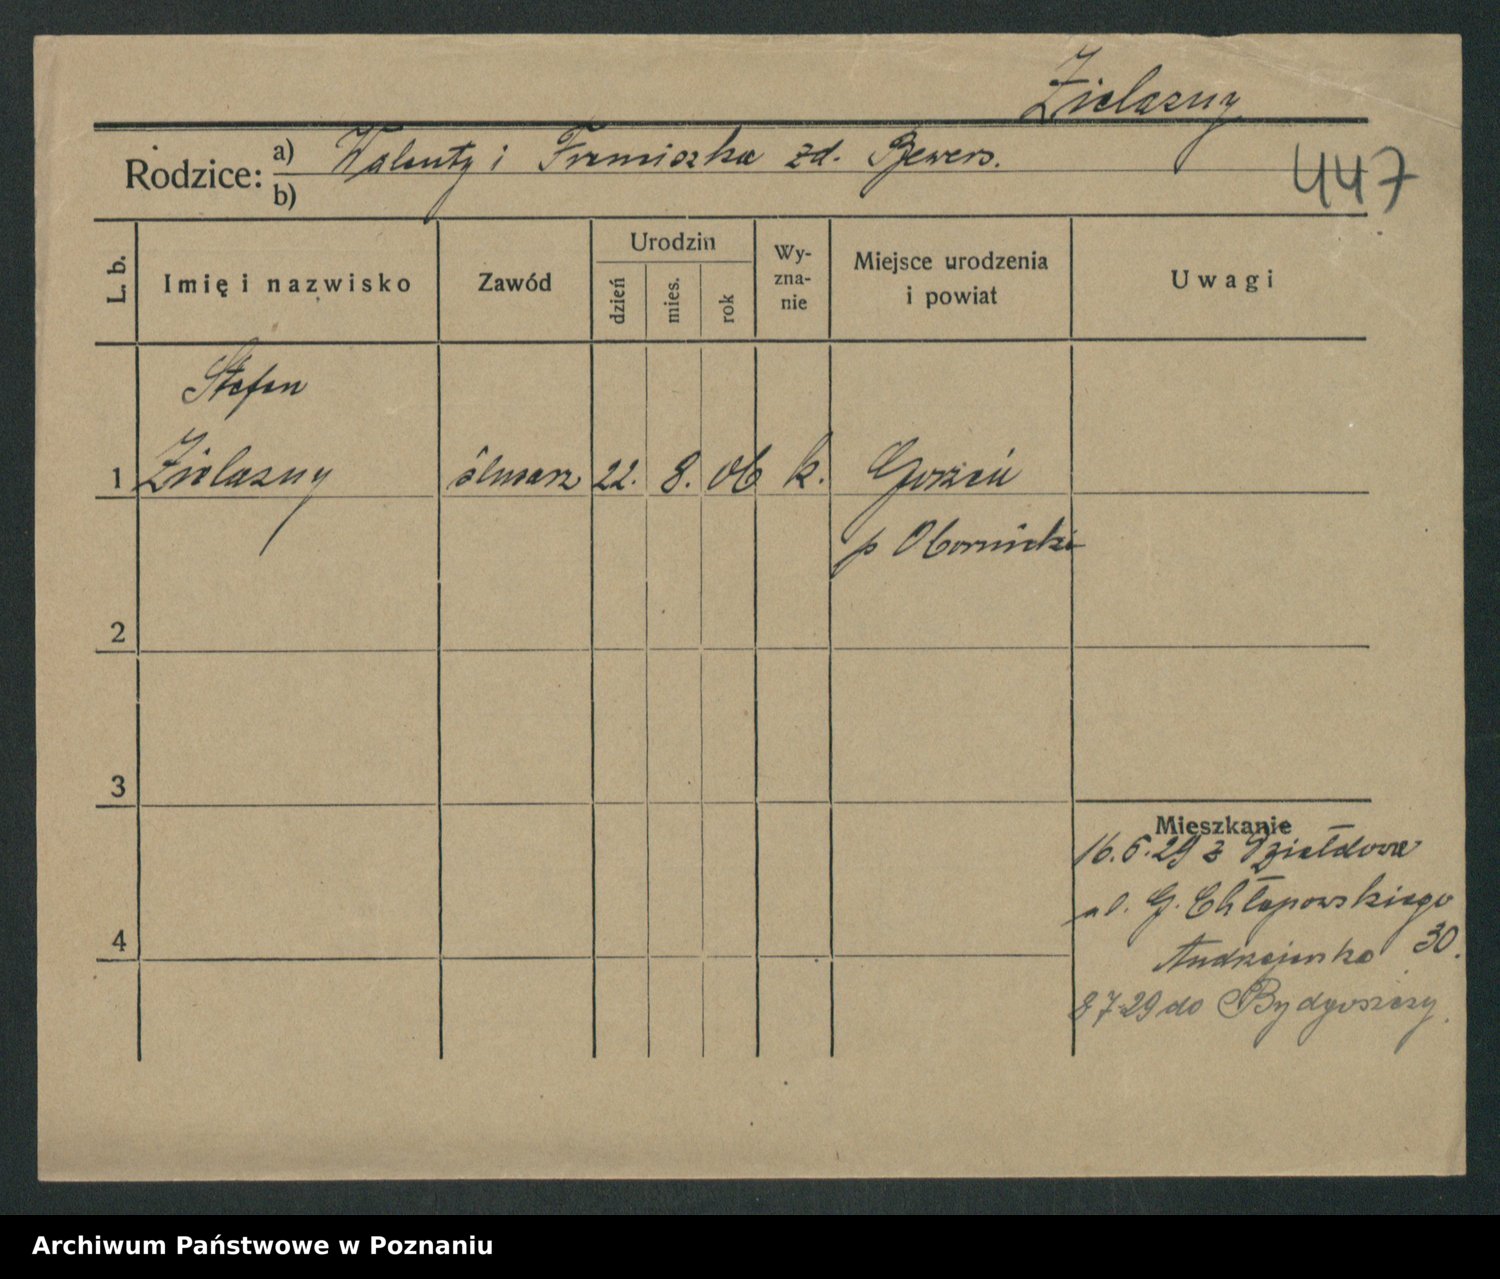 Zielazny
Rodzice: a) Walenty i Franciszka zd. Bewers.
b)
447
L. b. Imię i nazwisko Zawód Urodzin dzień mies. rok Wy-zna-nie Miejsce urodzenia i powiat Uwagi
Stefan
1 Zielazny ślusarz 22. 8. 06 k.
p Obornicki
2
3
Mieszkanie
16.6.29 z Działdowa
ul. G. Chłapowskiego
4
30.
8 7-29 do Bydgoszczy.
Archiwum Państwowe w Poznaniu